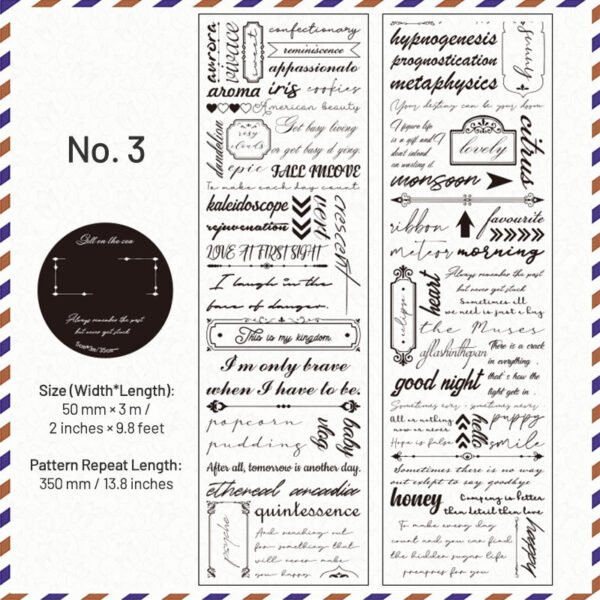 No. 3
Gill on the sea
Always remember the past
but never get stuck
5cm*3m/35cm
Size (Width*Length):
50 mm × 3 m /
2 inches × 9.8 feet
Pattern Repeat Length:
350 mm / 13.8 inches
aurora
vivace
sweet
confectionary
reminiscence
appassionato
aroma
iris
cookies
American beauty
dandelion
rosy
clouds
Get busy living
or get busy dying.
epic
FALL INLOVE
To make each day count
kaleidoscope
rejuvenation
veri
crescent
LOVE AT FIRST SIGHT
I laugh in the
face of danger.
This is my kingdom.
I'm only brave
when I have to be.
popcorn
pudding
vlog
baby
After all, tomorrow is another day.
ethereal arcadia
psyche
quintessence
And searching out
for something that
will never make
you happy
hypnogenesis
prognostication
metaphysics
Sunny
Your destiny can be your doom
I figure life
is a gift and I
don't intend
on wasting it
lovely
citrus
monsoon
ribbon
favourite
meteor
morning
eclipse
heart
Always remember the past
but never get stuck
Sometimes all
we need is just a hug
the Muses
aflashinthepan
There is a crack
in everything.
that's how the
light gets in.
good night
Sometimes ever, sometimes never
All or nothing
now or never
Hope is false
hello
puppy
smile
Sometimes there is no way
out exlept to say goodbye
honey
Company is better
than detail than love
To make every day
count and you can find
the hidden sugar life
prepares for you
happy